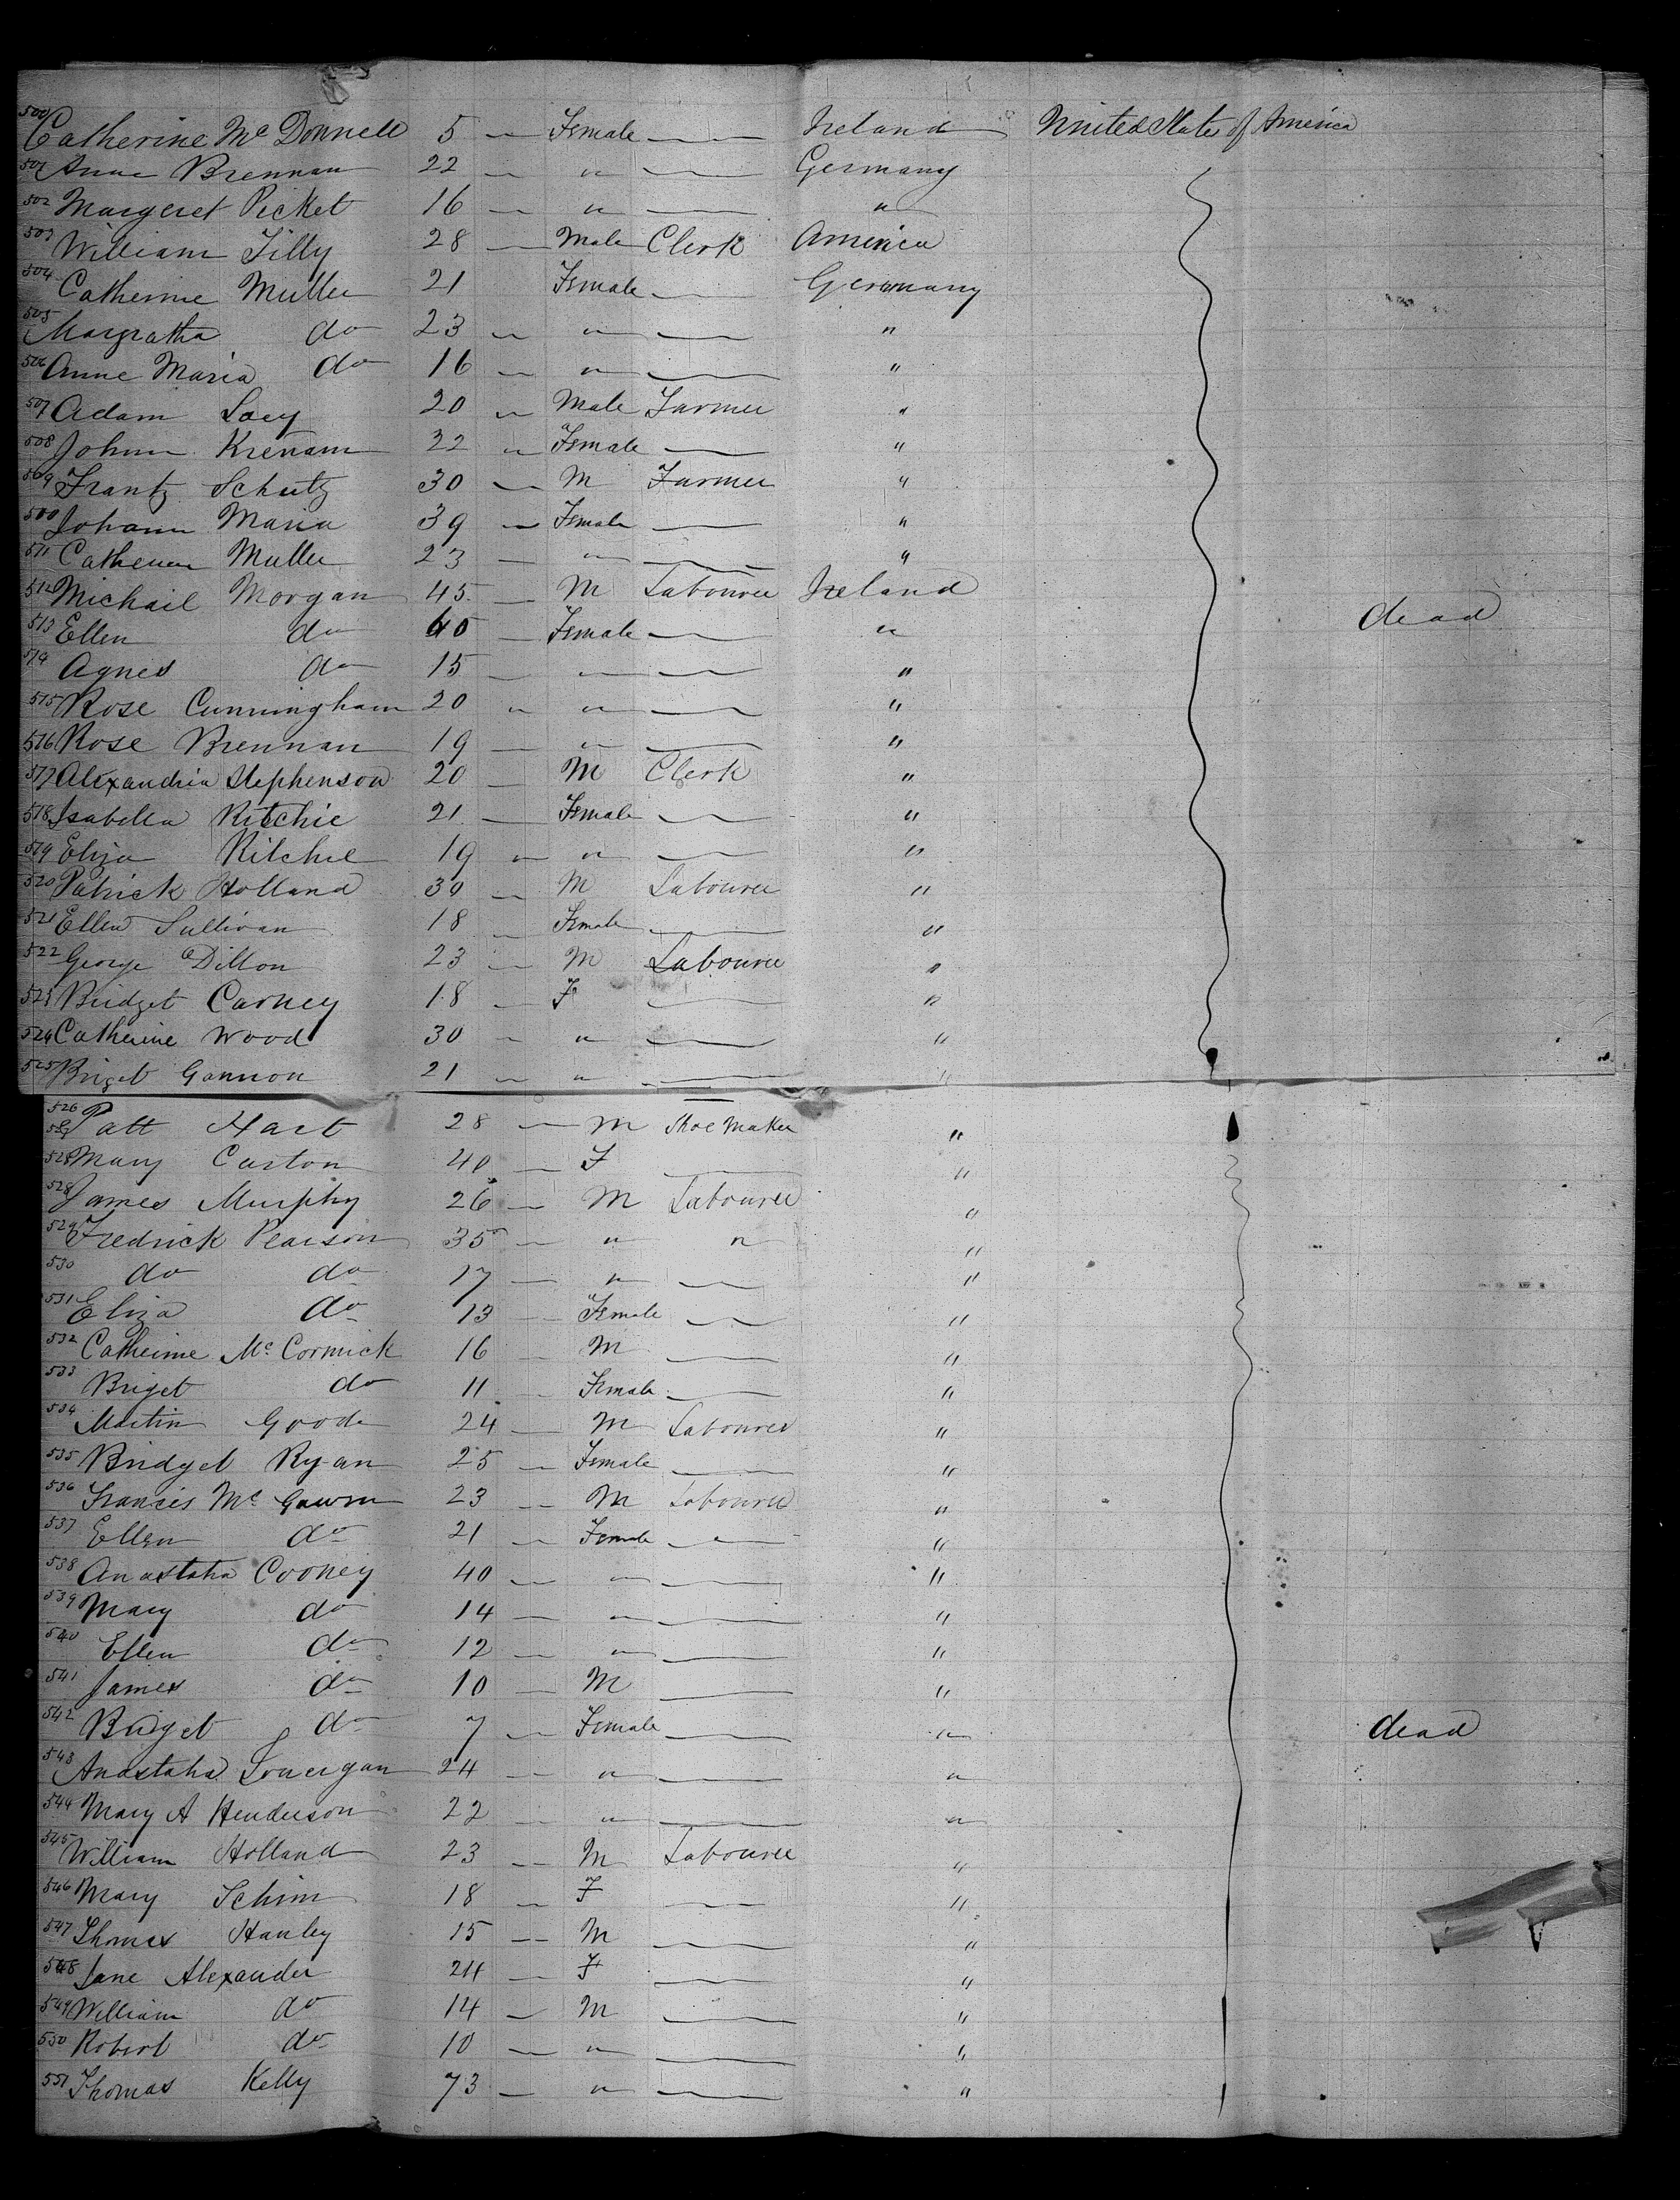 500 Catherine Mc Donnell 5 — Female — Ireland United States of America
501 Anne Brennan 22 — " — Germany
502 Margeret Picket 16 — " — "
503 William Tilly 28 — Male Clerk America
504 Catherine Muller 21 Female — Germany
505 Margratha do 23 — " — "
506 Anne Maria do 16 — " — "
507 Adam 20 — Male Farmer "
508 Johnn 22 — Female — "
509 Frantz Schutz 30 — M Farmer "
Johann Maria 39 — Female — "
511 Catherien Muller 23 — " — "
512 Michail Morgan 45 — M Labourer Ireland
513 Ellen do 40 — Female — " dead
514 Agnes do 15 — " — "
515 Rose Cunningham 20 " " — "
516 Rose Brennan 19 — " — "
517 Alexandria Stephenson 20 — M Clerk "
518 Isabella Ritchie 21 — Female — "
519 Eliza Ritchie 19 — " — "
520 Patrick Holland 30 — M Labourer "
521 Ellen Sullivan 18 — Female — "
522 George Dillon 23 — M Labourer "
523 Bridget Carney 18 — F — "
524 Catherine Wood 30 — " — "
525 Briget Gannon 21 — " — "
526 Patt Hart 28 — M Shoe Maker "
Mary Carton 40 — F — "
528 James Murphy 26 — M Labourer "
529 Fredrick Pearson 35 — " " "
530 do do 17 — " — "
531 Eliza do 13 — Female — "
532 Catherine Mc Cormick 16 — M — "
533 Briget do 11 — Female — "
534 Martin Goode 24 — M Labourer "
535 Bridget Ryan 25 — Female — "
536 Francis Mc Gawrn 23 — M Labourer "
537 Ellen do 21 — Female — "
538 Anastatia Cooney 40 — " — "
539 Mary do 14 — " — "
540 Ellen do 12 — " — "
541 James do 10 — M — "
542 Bridget do 7 — Female — " dead
543 Anastatia Lonergan 24 — " — "
544 Mary A Henderson 22 — " — "
545 William Holland 23 — M Labourer "
546 Mary Schim 18 — F — "
547 Thomas Hanley 15 — M — "
548 Jane Alexander 24 — F — "
549 William do 14 — M — "
550 Robert do 10 — " — "
551 Thomas Kelly 73 — " — "